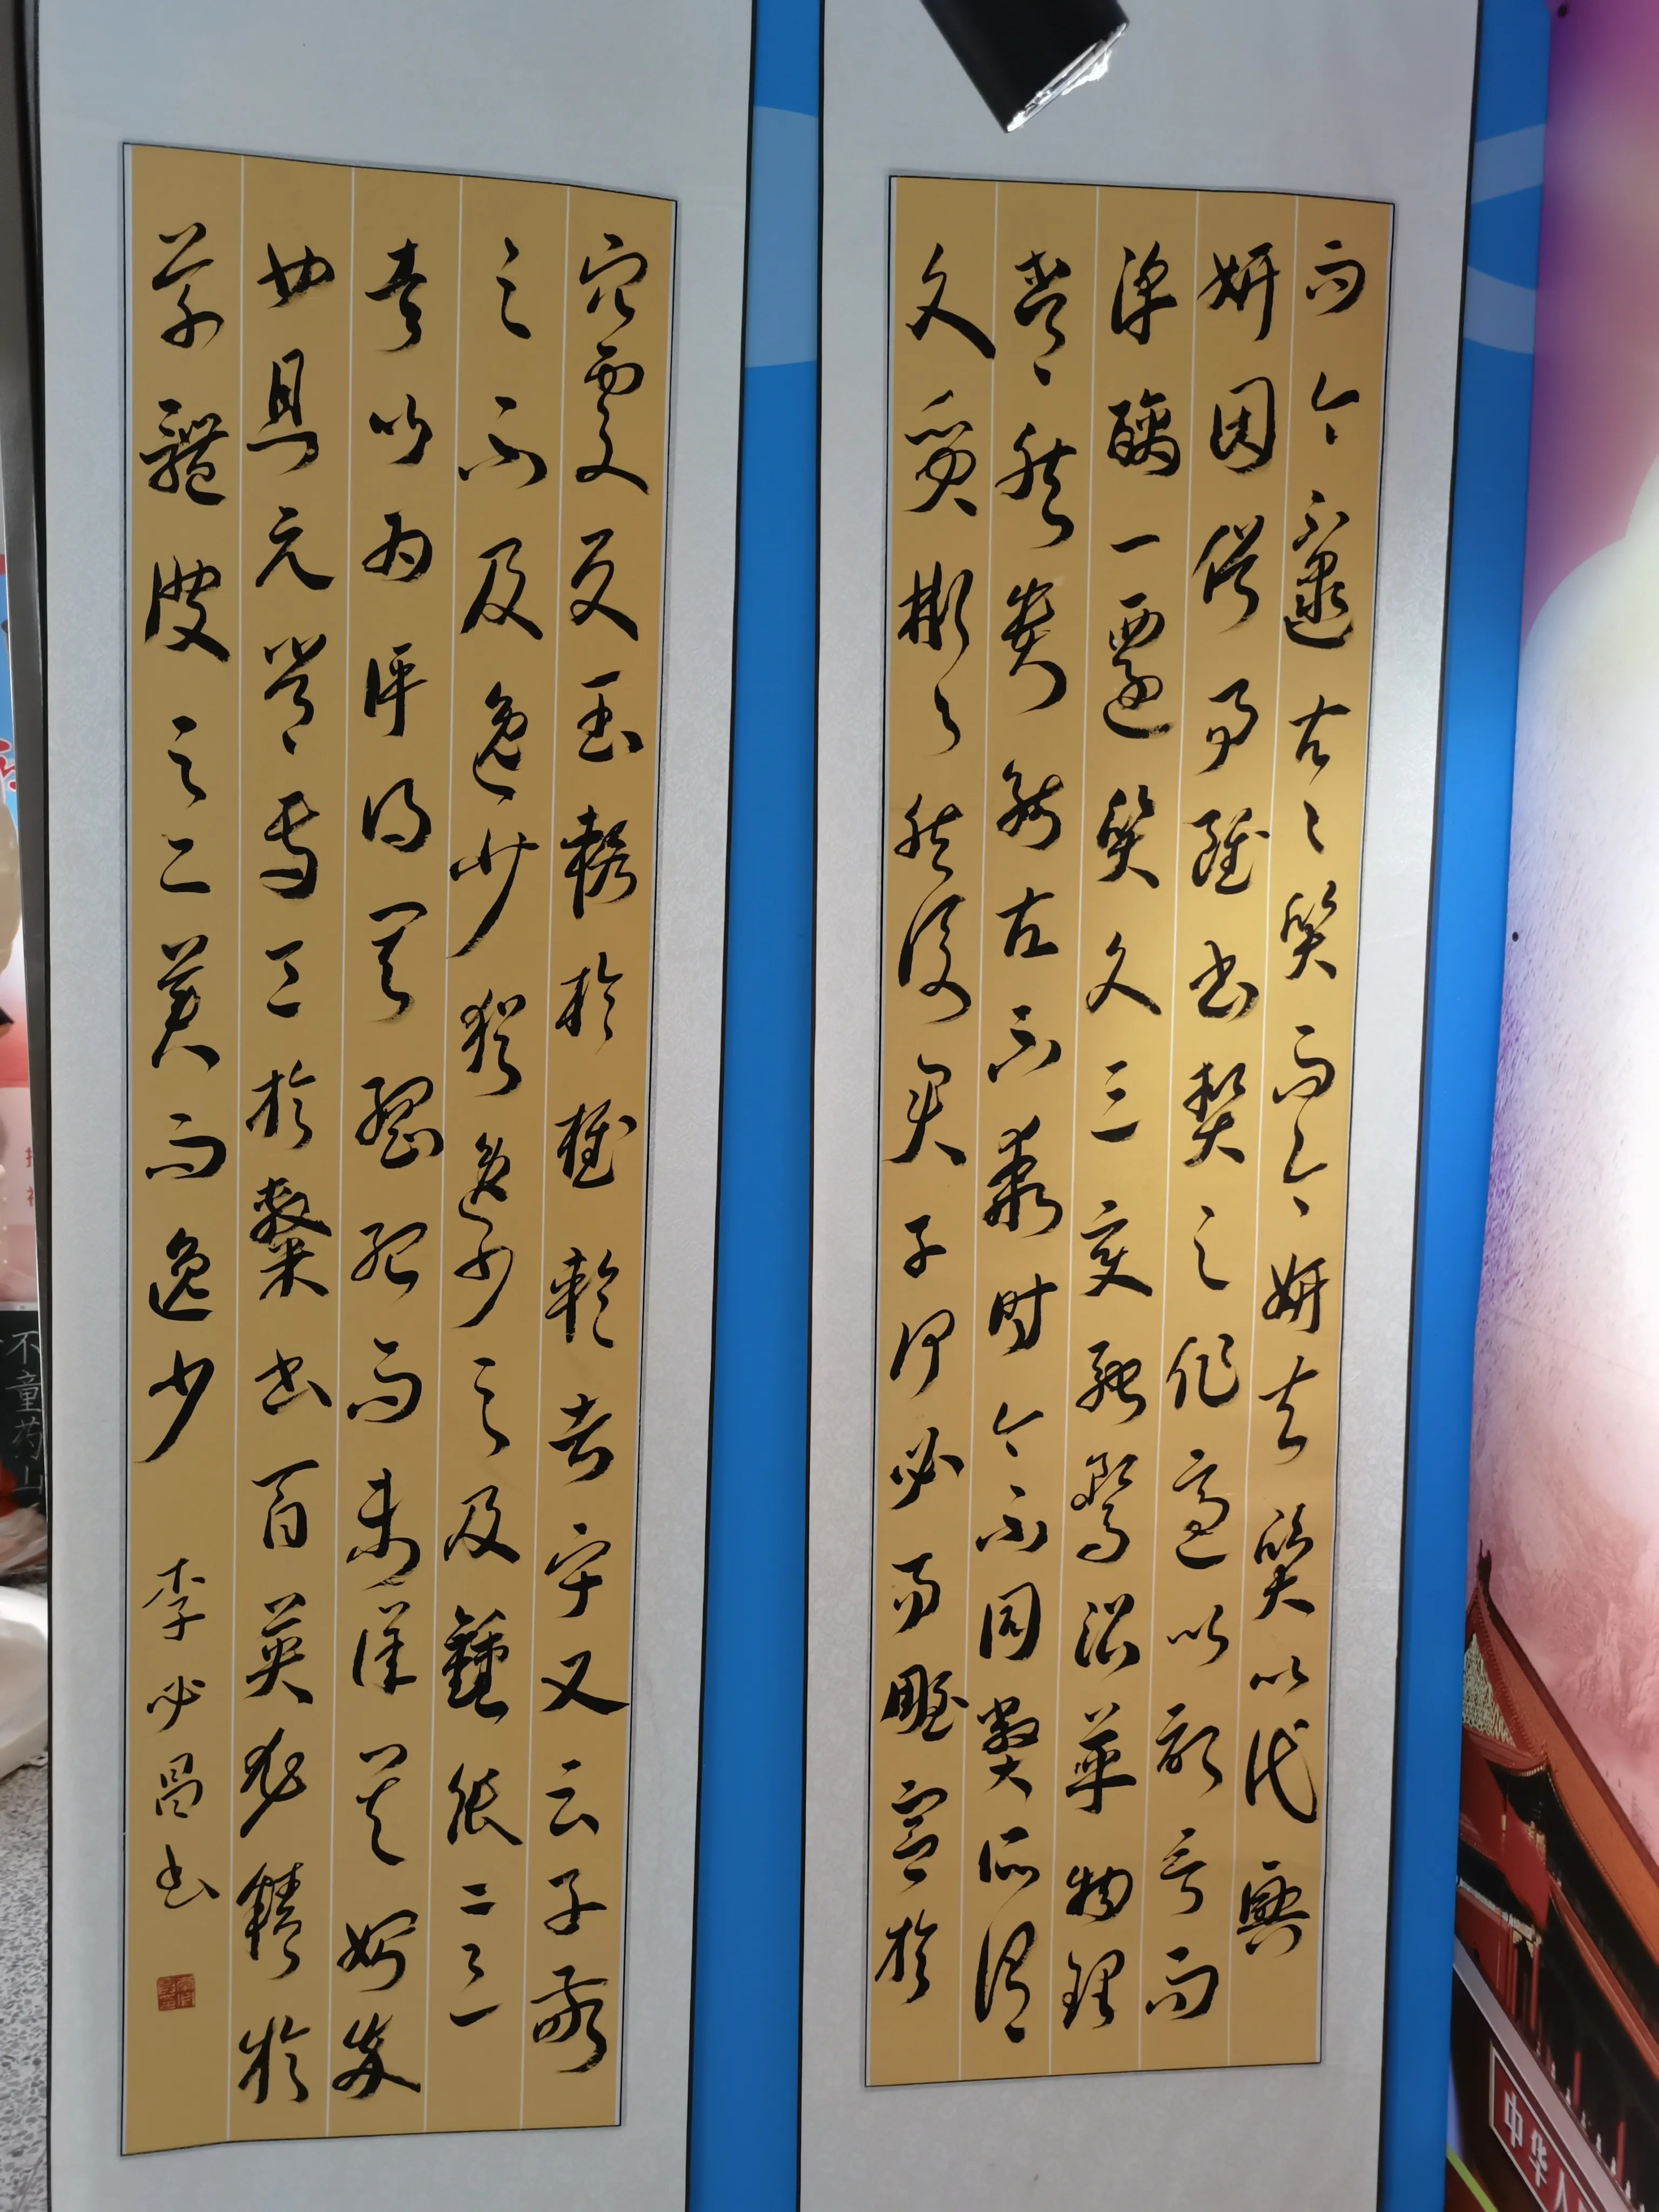 而今不逮古々質而今妍夫質以代興
妍因俗易雖書契之作適以記言而
淳醨一遷質文三變馳騖沿革物理
常然貴能古不乖時今不同弊所謂
文質彬々然後君子何必易雕宮於
穴處反玉輅於椎輪者乎又云子敬
之不及逸少猶逸少之及鍾張
意以為評得其綱紀而未詳其始卒
也且元常專工於隸書百英尤精於
草體彼之二美而逸少
李必昌书
中华人